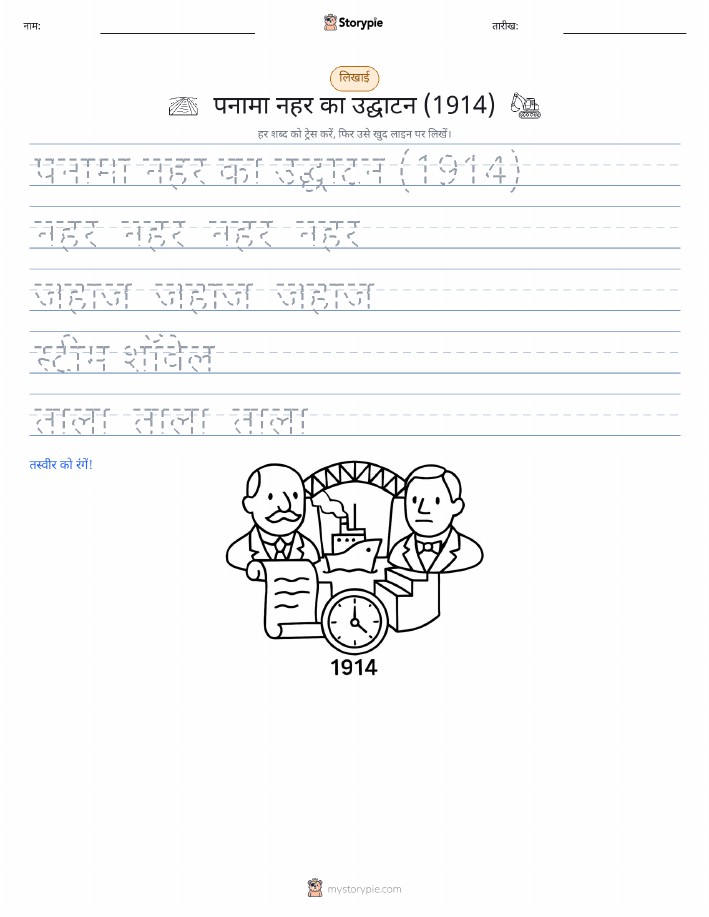 नाम:
Storypie
तारीख:
लिखाई
पनामा नहर का उद्घाटन (1914)
हर शब्द को ट्रेस करें, फिर उसे खुद लाइन पर लिखें।
पनामा नहर का उद्घाटन (1914)
नहर नहर नहर नहर
जहाज जहाज जहाज
स्टीम शॉवेल
ताला ताला ताला
तस्वीर को रंगें!
1914
mystorypie.com